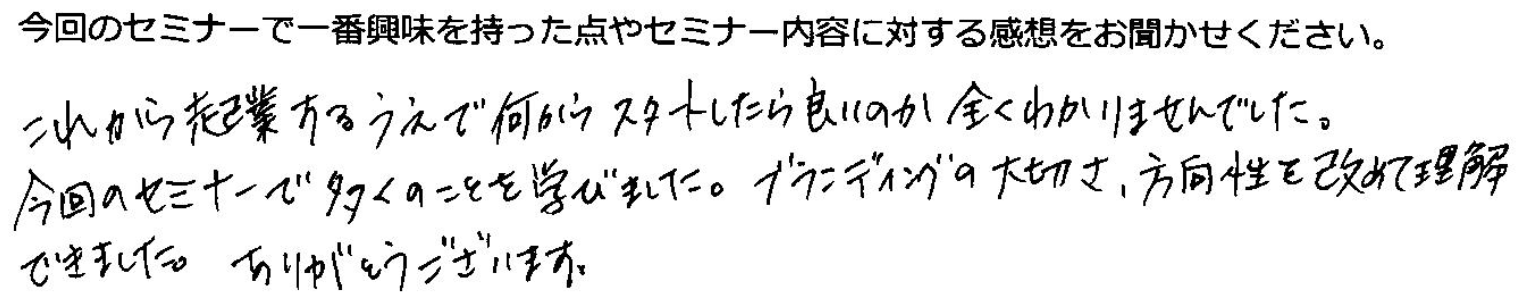 今回のセミナーで一番興味を持った点やセミナー内容に対する感想をお聞かせください。
これから起業するうえで何からスタートしたら良いのか全くわかりませんでした。
今回のセミナーで多くのことを学びました。ブランディングの大切さ、方向性を改めて理解
できました。ありがとうございます。